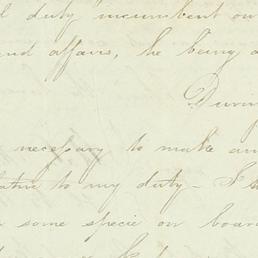 duty incumbent on
and affairs, he being a
Durin
necessary to make an
to my duty - I
some specie on boar